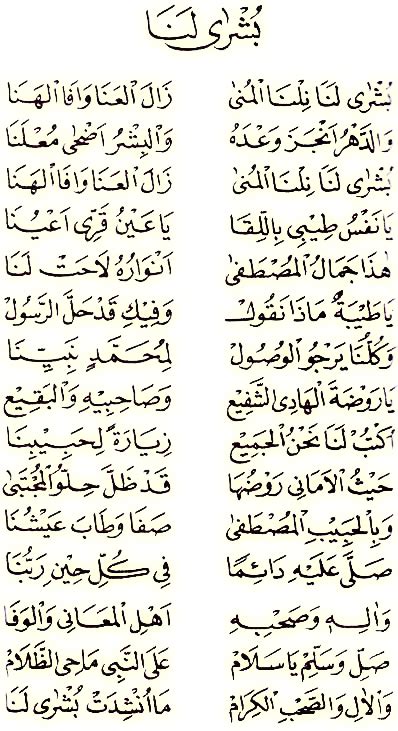 بُشْرٰى لَنَا
بُشْرٰى لَنَا نِلْنَا الْمُنٰى زَالَ الْعَنَا وَافَا الْهَنَا
وَالدَّهْرُ اَنْجَزَ وَعْدَهُ وَالْبِشْرُ اَضْحٰى مُعْلَنَا
بُشْرٰى لَنَا نِلْنَا الْمُنٰى زَالَ الْعَنَا وَافَا الْهَنَا
يَا نَفْسُ طِيْبِى بِاللِّقَا يَا عَيْنُ قَرِّى اَعْيُنَا
هٰذَا جَمَالُ الْمُصْطَفٰى اَنْوَارُهُ لَاحَتْ لَنَا
يَا طَيْبَةُ مَاذَا نَقُوْلُ وَفِيْكِ قَدْ حَلَّ الرَّسُوْلْ
وَكُلُّنَا يَرْجُو الْوُصُوْلْ لِمُحَمَّدٍ نَبِيِّنَا
يَا رَوْضَةَ الْهَادِى الشَّفِيْعِ وَصَاحِبَيْهِ وَالْبَقِيْعِ
اُكْتُبْ لَنَا نَحْنُ الْجَمِيْعْ زِيَارَةً لِحَبِيْبِنَا
حَيْثُ الْاَمَانِى رَوْضُهَا قَدْ ظَلَّ حِلْوُ الْمُجْتَبٰى
وَبِالْحَبِيْبِ الْمُصْطَفٰى صَفَا وَطَابَ عَيْشُنَا
صَلَّى عَلَيْهِ دَائِمًا فِى كُلِّ حِيْنٍ رَبُّنَا
وَاٰلِهِ وَصَحْبِهِ اَهْلِ الْمَعَانِى وَالْوَفَا
صَلِّ وَسَلِّمْ يَا سَلَامْ عَلَى النَّبِى مَاحِى الظَّلَامْ
وَالْاٰلِ وَالصَّحْبِ الْكِرَامْ مَا اُنْشِدَتْ بُشْرٰى لَنَا